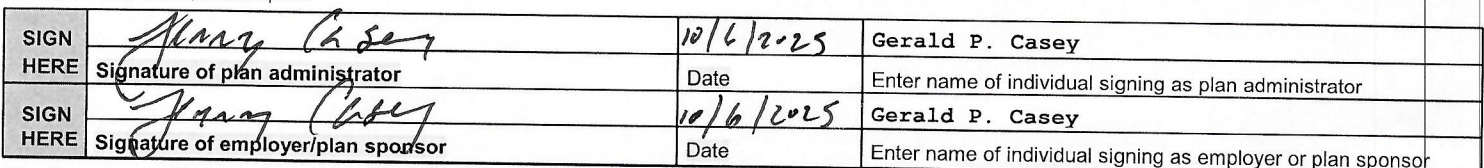 SIGN HERE Jerry Casey 10/6/2025 Gerald P. Casey
Signature of plan administrator Date Enter name of individual signing as plan administrator
SIGN HERE Jerry Casey 10/6/2025 Gerald P. Casey
Signature of employer/plan sponsor Date Enter name of individual signing as employer or plan sponsor